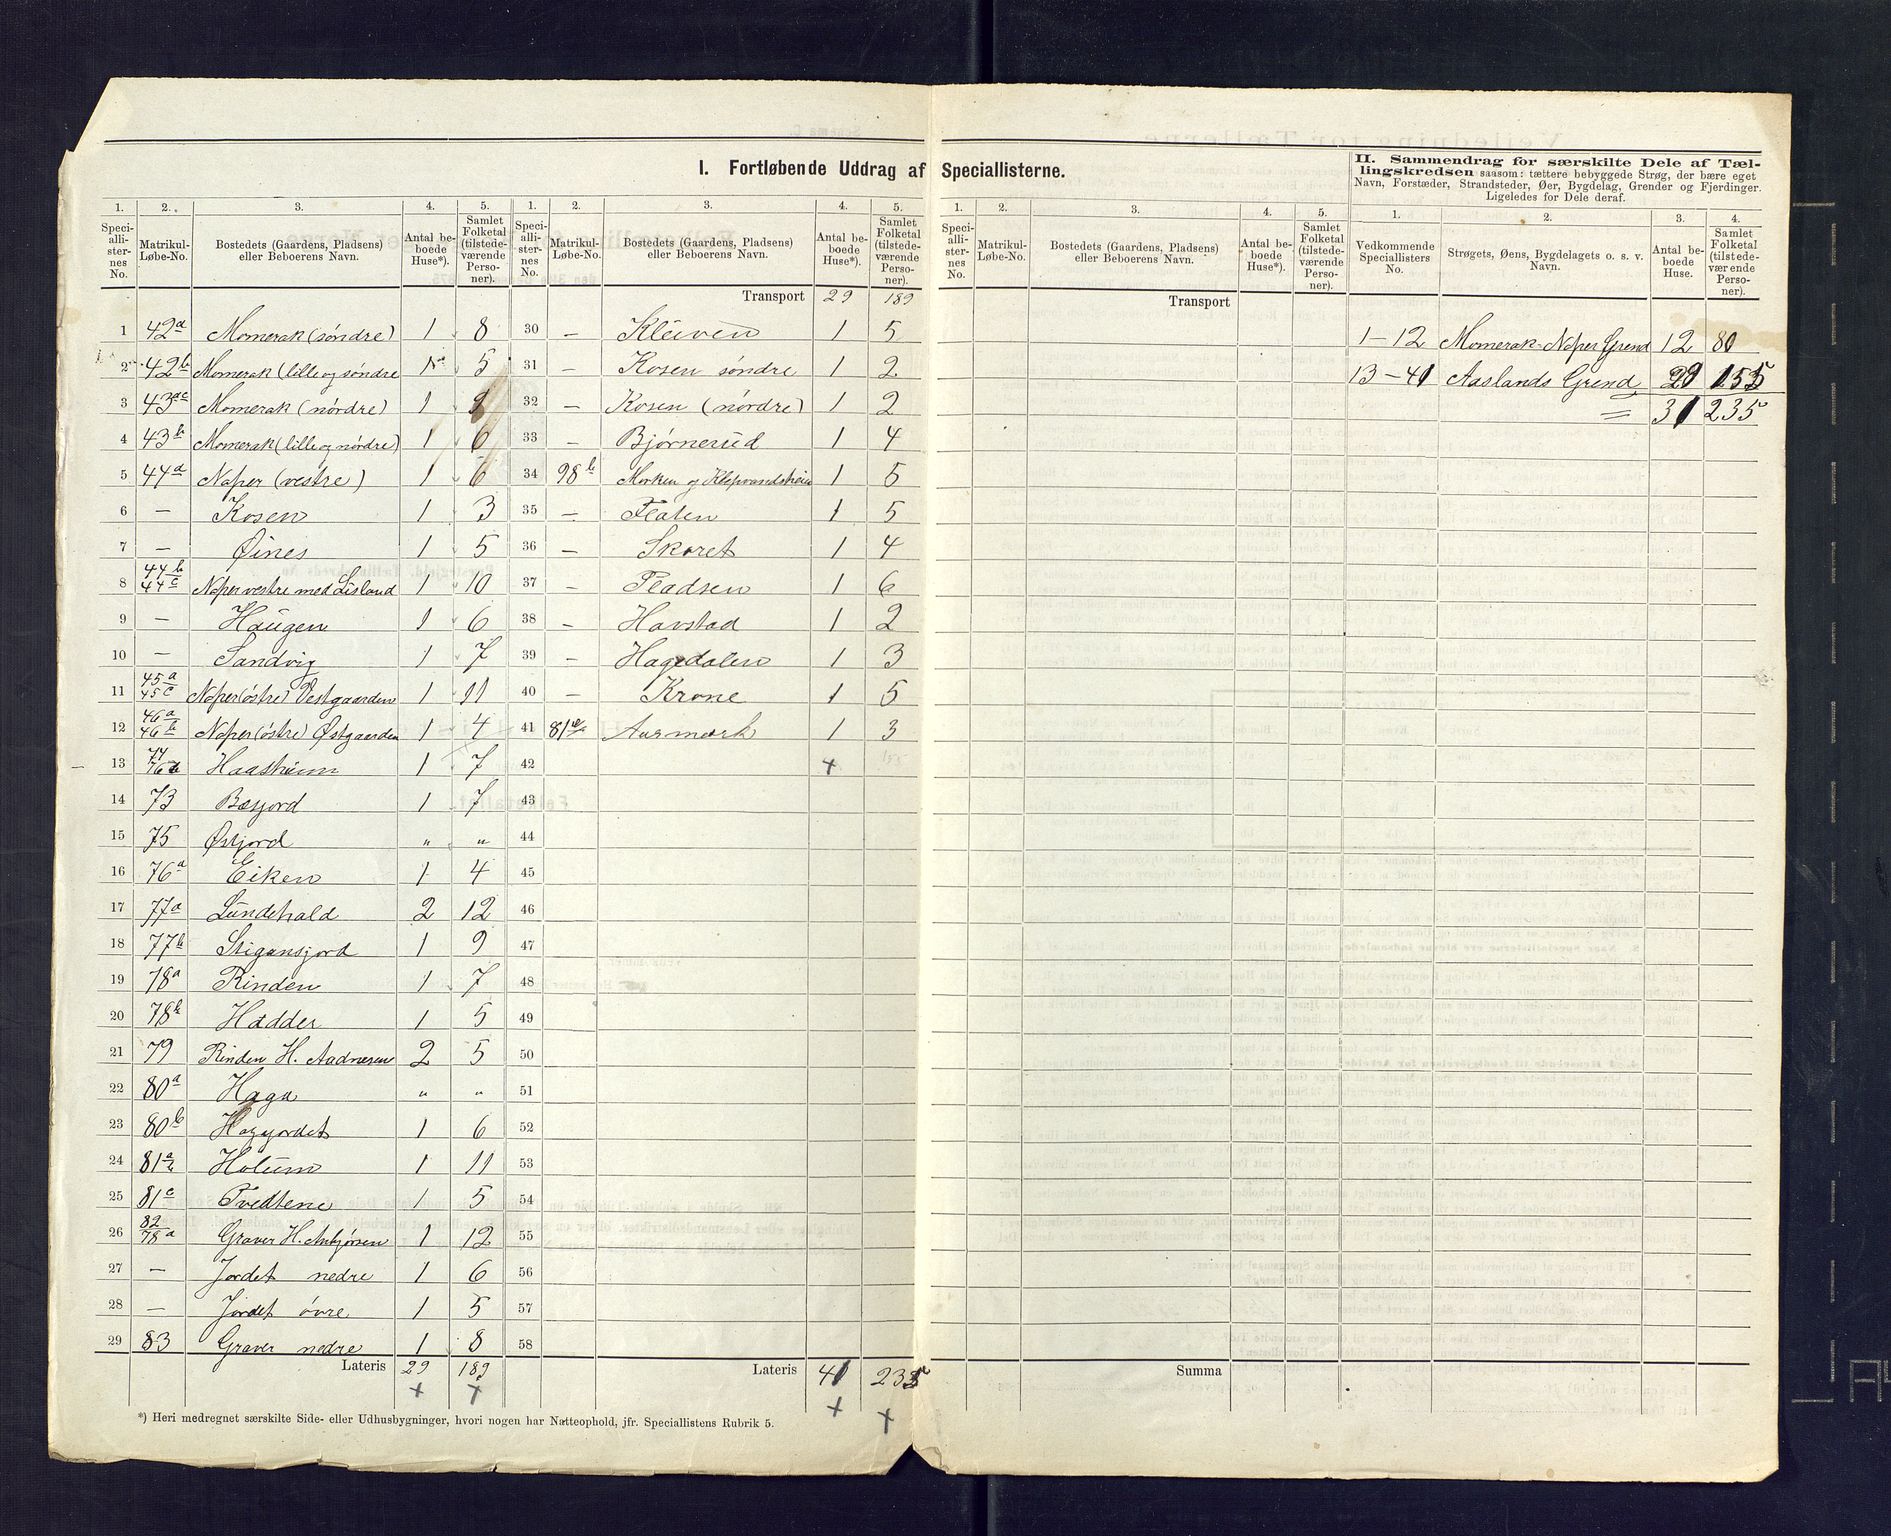 I. Fortløbende Uddrag af Speciallisterne.
II. Sammendrag for særskilte Dele af Tæl-
lingskredsen saasom: tættere bebyggede Strøg, der bære eget
Navn, Forstæder, Strandsteder, Øer, Bygdelag, Grender og Fjerdinger.
Ligeledes for Dele deraf.
1. 2. 3. 4. 5. 1. 2. 3. 4. 5. 1. 2. 3. 4. 5. 1. 2. 3. 4.
Speciallisternes No. Matrikul-Løbe-No. Bostedets (Gaardens, Pladsens) eller Beboerens Navn. Antal beboede Huse*). Samlet Folketal (tilstedeværende Personer).
Speciallisternes No. Matrikul-Løbe-No. Bostedets (Gaardens, Pladsens) eller Beboerens Navn. Antal beboede Huse*). Samlet Folketal (tilstedeværende Personer).
Speciallisternes No. Matrikul-Løbe-No. Bostedets (Gaardens, Pladsens) eller Beboerens Navn. Antal beboede Huse*). Samlet Folketal (tilstedeværende Personer).
Vedkommende Speciallisters No. Strøgets, Øens, Bygdelagets o. s. v. Navn. Antal beboede Huse. Samlet Folketal (tilstedeværende Personer).
1 42a Momerak (søndre) 1 8
2 42b Momerak (lille og søndre 5
3 43ac Momerak (nórdre) 1
4 43b Momerak (lille og nórdre) 1 6
5 44a Naper (vestre) 1 6
6 — Kosen 1 3
7 — Øines 1 5
8 44b 44c Naper vestre med Lisland 1 10
9 — Haugen 1 6
10 — Sandvig 1 7
11 45a 45c Naper (østre) Vestgaarden 1 11
12 46a 46b Naper (østre) Østgaarden 1 4
13 Haasheim 1 7
14 73 Bæsjord 1 7
15 75 Østjord " "
16 76a Eiken 1 4
17 77a Lundehald 2 12
18 77b Stigansjord 1 9
19 78a Rinden 1 7
20 78b Hadder 1 5
21 79 Rinden H. Aadnesen 2 5
22 80a Haga " "
23 80b Hagejordet 1 6
24 81a Holum 1 11
25 81c Tvedtene 1 5
26 82 78a Graver H. Anbjørsen 1 12
27 — Jordet nedre 1 6
28 — Jordet óvre 1 5
29 83 Graver nedre 1 8
Lateris 29 189
Transport 29 189
30 — Kleiven 1 5
31 — Kosen søndre 1 2
32 — Kosen (nórdre) 1 2
33 — Bjørnerud 1 4
34 98b Morken og Klepvandsheien 1 5
35 — Flaten 1 5
36 — Skaret 1 4
37 — Pladsen 1 6
38 — Havstad 1 2
39 — Hagedalen 1 3
40 — Krone 1 5
41 Aasmork 1 3
42
43
44
45
46
47
48
49
50
51
52
53
54
55
56
57
58
Lateris 41 235
Transport
Summa
1–12 Momerak-Naper Grend 12 80
13–41 Aaslands Grend 29 155
= 31 235
*) Heri medregnet særskilte Side- eller Udhusbygninger, hvori nogen har Natteophold, jfr. Speciallistens Rubrik 5.